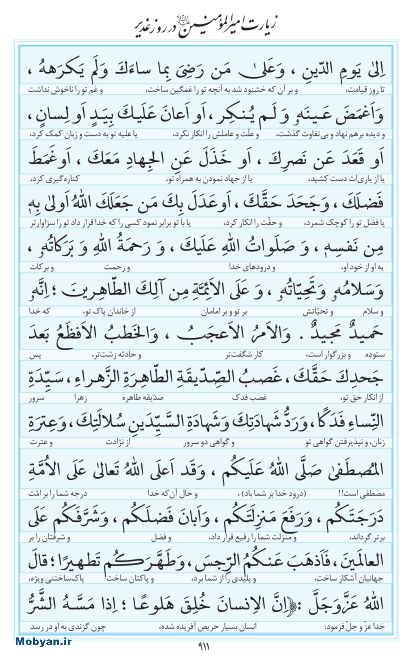 زیارت امیرالمؤمنین در روز غدیر
اِلىٰ يَومِ الدّينِ ، وَعَلىٰ مَن رَضِىَ بِما ساءَكَ وَلَم يَكرَههُ ،
تا روز قیامت، و بر آن که خشنود شد به آنچه تو را غمگین ساخت، و غم تو را ناخوش نداشت
وَاَغمَضَ عَينَهُ وَلَم يُنكِر ، اَو اَعانَ عَلَيكَ بِيَدٍ اَو لِسانٍ ،
و دیده برهم نهاد و بی‌تفاوت گذشت، و علّت و عاملش را انکار نکرد، یا علیه تو به دست و زبان کمک کرد،
اَو قَعَدَ عَن نَصرِكَ ، اَو خَذَلَ عَنِ الجِهادِ مَعَكَ ، اَو غَمَطَ
یا از یاری‌ات دست کشید، یا از جهاد نمودن به همراه تو، کناره‌گیری کرد،
فَضلَكَ ، وَجَحَدَ حَقَّكَ ، اَو عَدَلَ بِكَ مَن جَعَلَكَ اللهُ اَولىٰ بِهِ
یا فضل تو را کوچک شمرد، و حقّت را انکار کرد، یا با تو برابر نمود کسی را که خدا قرار داد تو را سزاوارتر
مِن نَفسِهِ ، وَ صَلَواتُ اللهِ عَلَيكَ ، وَ رَحمَةُ اللهِ وَ بَرَكاتُهُ ،
به او از خود او، و درودهای خدا و رحمت و برکات
وَسَلامُهُ وَتَحِيّاتُهُ ، وَ عَلَى الاَئِمَّةِ مِن آلِكَ الطّاهِرينَ ؛ اِنَّهُ
و سلام و تحیّاتش بر تو و بر امامان از خاندان پاک تو، که خدا
حَميدٌ مَجيدٌ . وَالاَمرُ الاَعجَبُ ، وَالخَطبُ الاَفظَعُ بَعدَ
ستوده و بزرگوار است، کار شگفت‌تر و حادثه زشت‌تر، پس
جَحدِكَ حَقَّكَ ، غَصبُ الصِّدّيقَةِ الطّاهِرَةِ الزَّهراءِ ، سَيِّدَةِ
از انکار حق تو، غصب فدک صدیقه طاهره زهرا سرور
النِّساءِ فَدَكًا ، وَرَدُّ شَهادَتِكَ وَشَهادَةِ السَّيِّدَينِ سُلالَتِكَ ، وَعِترَةِ
زنان، و نپذیرفتن گواهی تو و گواهی دو سرور از نژادت و عترت
المُصطَفىٰ صَلَّى اللهُ عَلَيكُم ، وَقَد اَعلَى اللهُ تَعالىٰ عَلَى الاُمَّةِ
مصطفی است!! (درود خدا بر شما باد)، و حال آن که خدا درجه شما را بر امّت
دَرَجَتَكُم ، وَرَفَعَ مَنزِلَتَكُم ، وَاَبانَ فَضلَكُم ، وَشَرَّفَكُم عَلَى
برتر گرداند، و منزلت شما را رفیع قرار داد، و فضل و شرفتان را بر
العالَمينَ ، فَاَذهَبَ عَنكُمُ الرِّجسَ ، وَطَهَّرَكُم تَطهيرًا ؛ قالَ
جهانیان آشکار ساخت، و پلیدی را از شما برد، و پاکتان ساخت پاک‌ساختنی ویژه،
اللهُ عَزَّوَجَلَّ : ﴿اِنَّ الاِنسانَ خُلِقَ هَلوعًا ؛ اِذا مَسَّهُ الشَّرُّ
خدا عزّ و جلّ فرمود: انسان بسیار حریص آفریده شده، چون گزندی به او در رسد
۹۱۱
Mobyan.ir